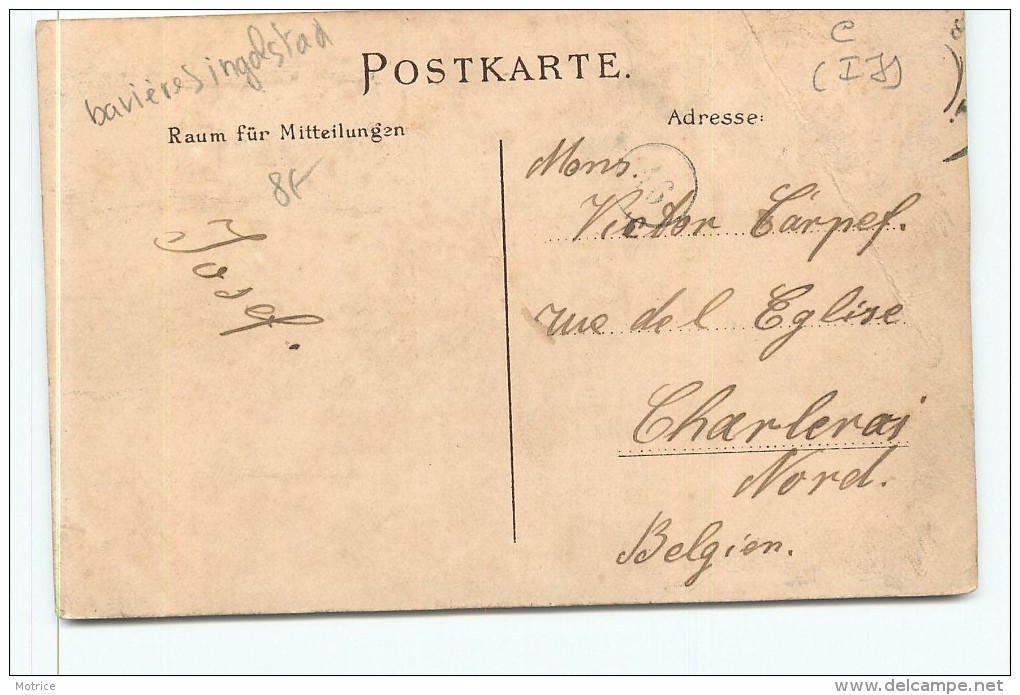 bavières ingolstad
POSTKARTE.
C
(IJ)
Raum für Mitteilungen
Adresse:
8F
16
Josef.
Mons.
Victor Cárpef.
rue de l Eglise
Charleroi
Nord.
Belgien.
Motrice
www.delcampe.net